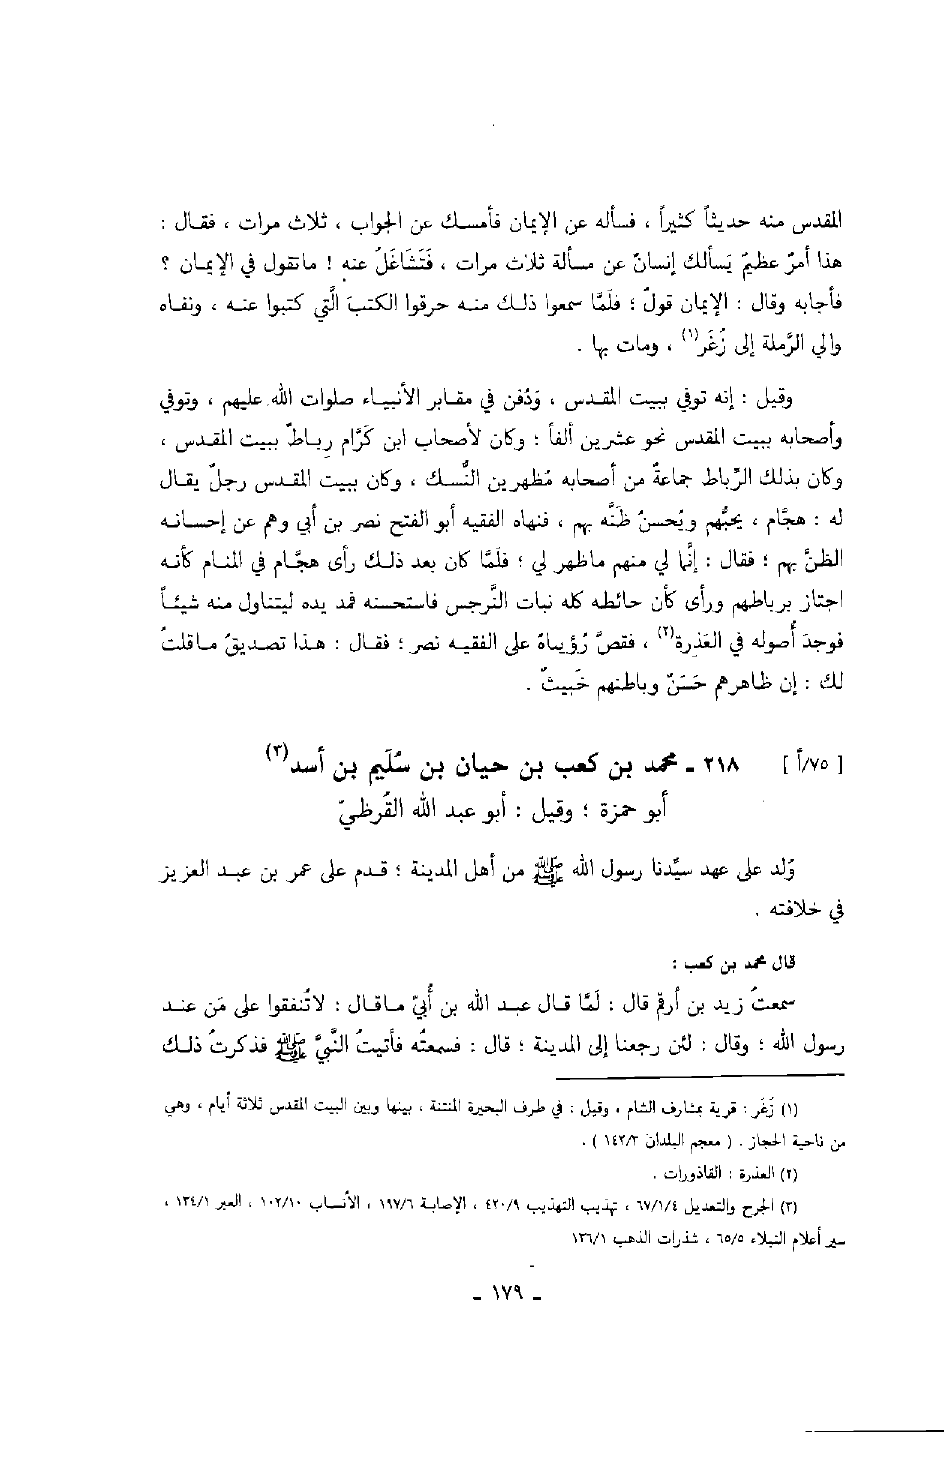 المقدس منه حديثاً كثيراً ، فسأله عن الإيمان فأمسك عن الجواب ، ثلاث مرات ، فقال :
هذا أمرٌ عظيمٌ يَسألك إنسانٌ عن مسألة ثلاث مرات ، فَتَشَاغَلُ عنه ! ماتقول في الإيمان ؟
فأجابه وقال : الإيمان قولٌ ؛ فلمَّا سمعوا ذلك منه حرقوا الكتبَ الَّتي كتبوا عنه ، ونفاه
والي الرَّملة إلى زُغَر(١) ، ومات بها .
وقيل : إنه توفي ببيت المقدس ، وَدُفن في مقابر الأنبياء صلوات الله عليهم ، وتوفي
وأصحابه ببيت المقدس نحو عشرين ألفاً ؛ وكان لأصحاب ابن كَرَّام رِباطٌ ببيت المقدس ،
وكان بذلك الرِّباط جماعةٌ من أصحابه مُظهرين النُّسك ، وكان ببيت المقدس رجلٌ يقال
له : هجَّام ، يحبُّهم ويُحسنُ ظنَّه بهم ، فنهاه الفقيه أبو الفتح نصر بن أبي وهم عن إحسانه
الظنَّ بهم ؛ فقال : إنَّما لي منهم ماظهر لي ؛ فلمَّا كان بعد ذلك رأى هجَّام في المنام كأنه
اجتاز برباطهم ورأى كأن حائطه كله نبات النَّرجس فاستحسنه فمد يده ليتناول منه شيئاً
فوجدَ أُصوله في العَذرة(٢) ، فقصَّ رُؤياهُ على الفقيه نصر ؛ فقال : هذا تصديقُ ماقلتُ
لك : إن ظاهرهم حَسَنٌ وباطنهم خَبيثٌ .
[ ٧٥/أ ] ٢١٨ ـ محمد بن كعب بن حيان بن سُلَيم بن أسد(٣)
أبو حمزة ؛ وقيل : أبو عبد الله القُرظيّ
وُلد على عهد سيِّدنا رسول الله ﷺ من أهل المدينة ؛ قدم على عمر بن عبد العزيز
في خلافته .
قال محمد بن كعب :
سمعتُ زيد بن أرقم قال : لَمَّا قال عبد الله بن أُبيّ ماقال : لاتُنفقوا على مَن عند
رسول الله ؛ وقال : لئن رجعنا إلى المدينة ؛ قال : فسمعتُه فأتيتُ النَّبيَّ ﷺ فذكرتُ ذلك
(١) زُغَر : قرية بمشارف الشام ، وقيل : في طرف البحيرة المنتنة ، بينها وبين البيت المقدس ثلاثة أيام ، وهي
من ناحية الحجاز . ( معجم البلدان ١٤٢/٣ ) .
(٢) العذرة : القاذورات .
(٣) الجرح والتعديل ٦٧/١/٤ ، تهذيب التهذيب ٤٢٠/٩ ، الإصابة ١٩٧/٦ ، الأنساب ١٠٢/١٠ ، العبر ١٣٤/١ ،
سير أعلام النبلاء ٦٥/٥ ، شذرات الذهب ١٣٦/١
ـ ١٧٩ ـ